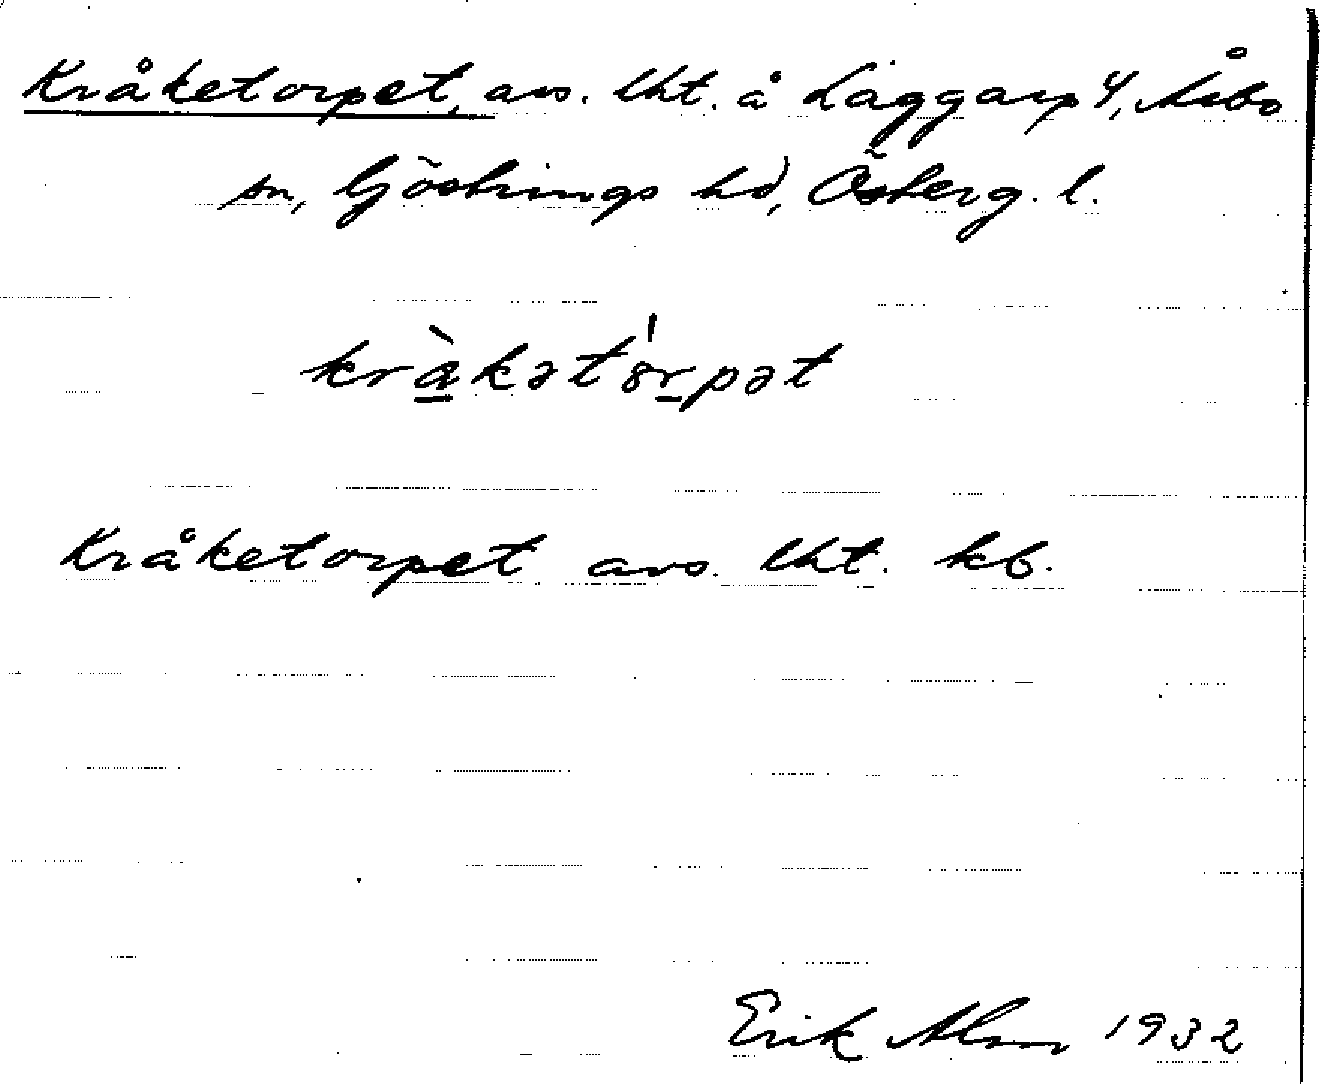 Kråketorpet, avs. lht. å Laggarp 4, Åsbo
sn, Göstrings hd, Österg. l.
kràkətȯrpət
Kråketorpet avs. lht. kb.
Erik Alm 1932